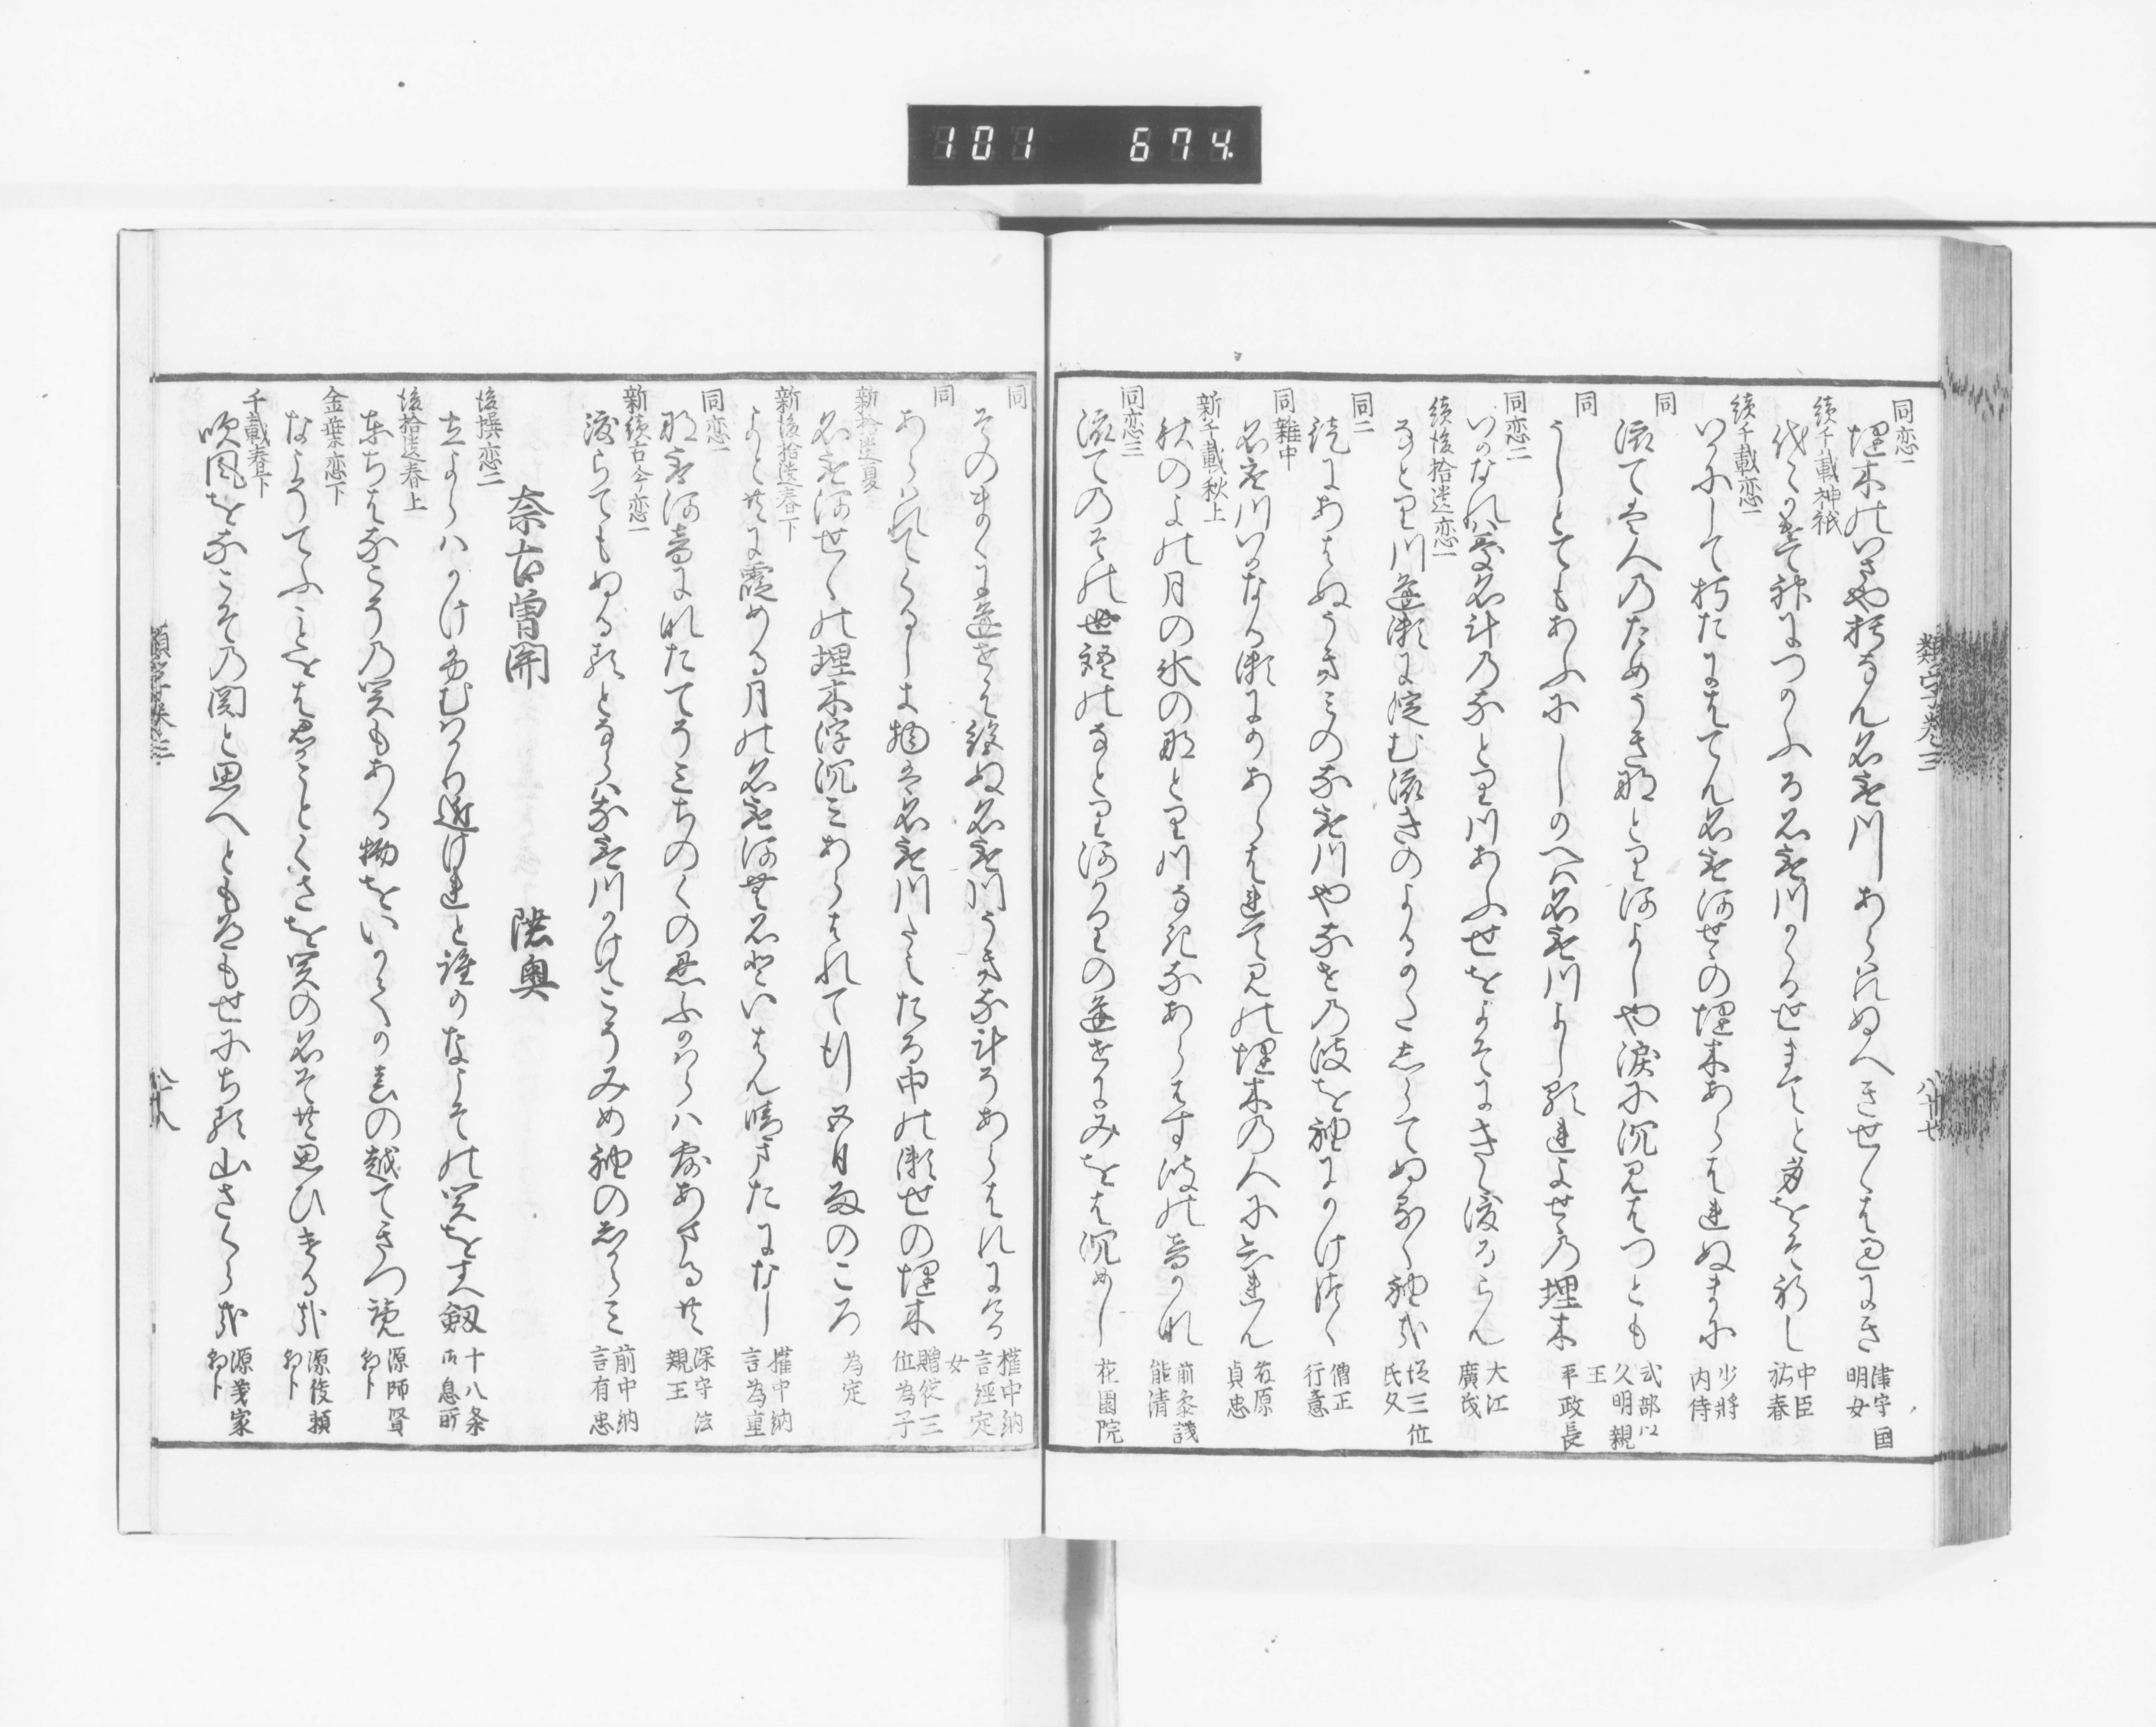 101 674.
類字巻三
八十七
同恋一
埋木のいさや朽なん名取川あらはれぬへきせゝは過にき
津守国明女
続千載神祇
代々かけて神につかふる名取川かゝる世まてと身をそ祈し
中臣祐春
続千載恋一
いかにして朽たにはてん名取河せゝの埋木あらはれぬまに
少将内侍
同
流ては人のためうき名とり河よしや涙に沈みはつとも
式部卿久明親王
同
うしとてもあふにしかへは名取川よし顕れよせゝの埋木
平政長
同恋二
いかなれは我名計のなとり川あふせをよそにきゝ渡るらん
大江廣茂
続後拾遺恋一
なとり川逢瀬に淀む流きのよるかたしらてぬるゝ袖哉
従三位氏久
同二
逢にあはぬうき三の名取川やなせの波を袖にかけつゝ
僧正行意
同雑中
名取川いかなる瀬にかあらはれて見の埋木の人に知れん
藤原貞忠
新千載秋上
秋のよの月の氷の名とり川なきなあらはす波の音かな
前参議能清
同恋三
流てのその世語のなとり河かりの逢せにみをは沈めし
花園院
同
そのまゝに逢せは絶ぬ名取川うき名計そあらはれにける
権中納言経定女
同
あらはれてくるしき物は名取川したゝる中の瀬世の埋木
贈従三位為子
新拾遺夏
名取河せゝの埋木浮沈みあらはれて行五月雨のころ
為定
新後拾遺春下
よと共に霞める月の名取河無名といはん晴またになし
権中納言為重
同恋一
名取河音になたてそみちのくの忍ふかはらハ露あまる共
深守法親王
新続古今恋一
渡らてもぬるゝとならは名取川かけてこそみめ袖のしからみ
前中納言有忠
奈古曽関　陸奥
後撰恋二
立よらハかけふむはかり近けれと誰かなこその関をすへ剱
十八条御息所
後拾遺春上
東ちはなこその関もある物をいかてか春の越てきつ覧
源師賢朝臣
金葉恋下
なこそてふことをは君かことくさを関の名そ共思ひける哉
源俊頼朝臣
千載春下
吹風をなこその関と思へとも道もせにちる山さくら哉
源義家朝臣
類字巻三
八十八